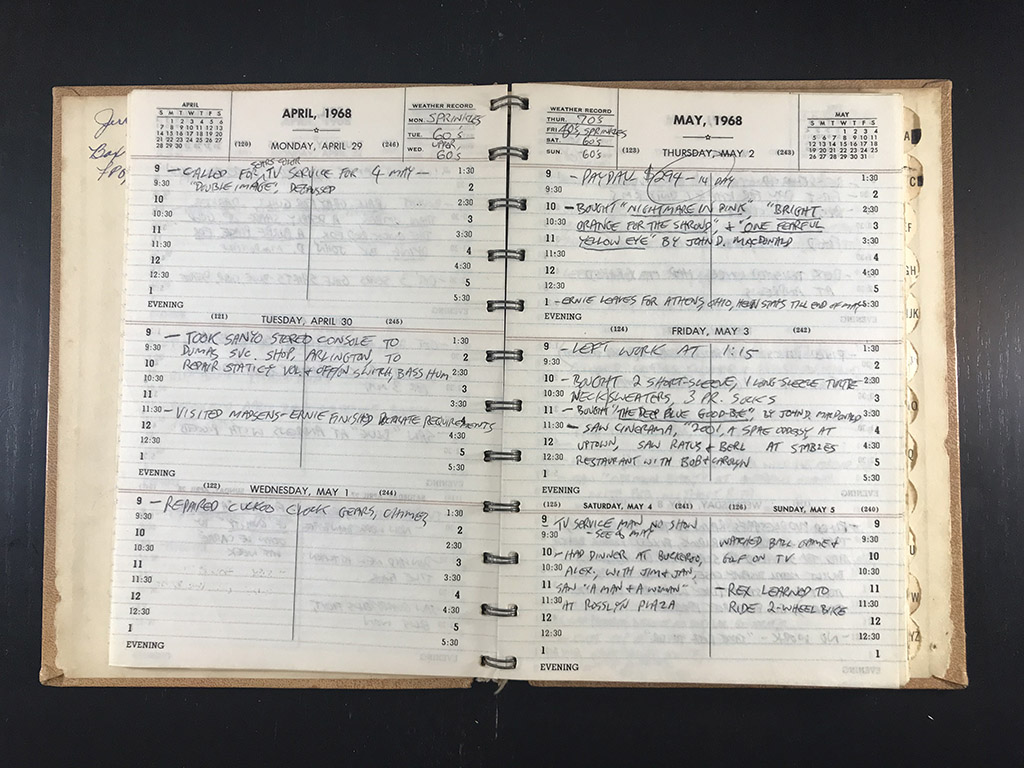 Box
APRIL
S M T W T F S
1 2 3 4 5 6
7 8 9 10 11 12 13
14 15 16 17 18 19 20
21 22 23 24 25 26 27
28 29 30
APRIL, 1968
(120) MONDAY, APRIL 29 (246)
WEATHER RECORD
MON. SPRINKLES
TUE. 60's
WED. UPPER 60's
SEARS COLOR
9 — CALLED FOR TV SERVICE FOR 4 MAY — 1:30
9:30 "DOUBLE IMAGE", DEFUSSED 2
10 2:30
10:30 3
11 3:30
11:30 4
12 4:30
12:30 5
1 5:30
EVENING
(121) TUESDAY, APRIL 30 (245)
9 — TOOK SANYO STEREO CONSOLE TO 1:30
9:30 DUMAS SVC. SHOP, ARLINGTON, TO 2
10 REPAIR STATICY VOL. & OFF/ON SWITCH, BASS HUM 2:30
10:30 3
11 3:30
11:30 — VISITED MADSENS - ERNIE FINISHED REQUIREMENTS 4
12 4:30
12:30 5
1 5:30
EVENING
(122) WEDNESDAY, MAY 1 (244)
9 — REPAIRED CUCKOO CLOCK GEARS, CHIMES 1:30
9:30 2
10 2:30
10:30 3
11 3:30
11:30 4
12 4:30
12:30 5
1 5:30
EVENING
WEATHER RECORD
THUR. 70's
FRI. SPRINKLES
SAT. 60's
SUN. 60's
MAY, 1968
(123) THURSDAY, MAY 2 (243)
MAY
S M T W T F S
1 2 3 4
5 6 7 8 9 10 11
12 13 14 15 16 17 18
19 20 21 22 23 24 25
26 27 28 29 30 31
9 — PAYDAY $294 — 14 DAY 1:30
9:30 2
10 — BOUGHT "NIGHTMARE IN PINK", "BRIGHT 2:30
10:30 ORANGE FOR THE SHROUD", & "ONE FEARFUL 3
11 YELLOW EYE" BY JOHN D. MACDONALD 3:30
11:30 4
12 4:30
12:30 5
1 — ERNIE LEAVES FOR ATHENS, OHIO, HELEN STAYS TILL END OF MAY 5:30
EVENING
(124) FRIDAY, MAY 3 (242)
9 — LEFT WORK AT 1:15 1:30
9:30 2
10 — BOUGHT 2 SHORT-SLEEVE, 1 LONG SLEEVE TURTLE 2:30
10:30 NECK SWEATERS, 3 PR. SOCKS 3
11 — BOUGHT "THE DEEP BLUE GOOD-BYE" BY JOHN D. MACDONALD 3:30
11:30 — SAW CINERAMA, "2001, A SPACE ODDESY AT 4
12 UPTOWN, SAW RATUS & BERL AT STABLES 4:30
12:30 RESTAURANT WITH BOB & CAROLYN 5
1 5:30
EVENING
(125) SATURDAY, MAY 4 (241) (126) SUNDAY, MAY 5 (240)
9 TV SERVICE MAN NO SHOW 9
9:30 — SEE 8 MAY WATCHED BALL GAME & 9:30
10 — HAD DINNER AT GOLF ON TV 10
10:30 ALEX., WITH JIM & JAN, 10:30
11 SAW "A MAN & A WOMAN" — REX LEARNED TO 11
11:30 AT ROSSLYN PLAZA RIDE 2-WHEEL BIKE 11:30
12 12
12:30 12:30
1 1
EVENING
A
C
GH
JK
O
Q
U
W
YZ